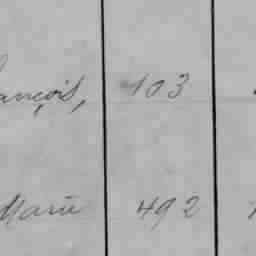 ançois, 103
Marie 492